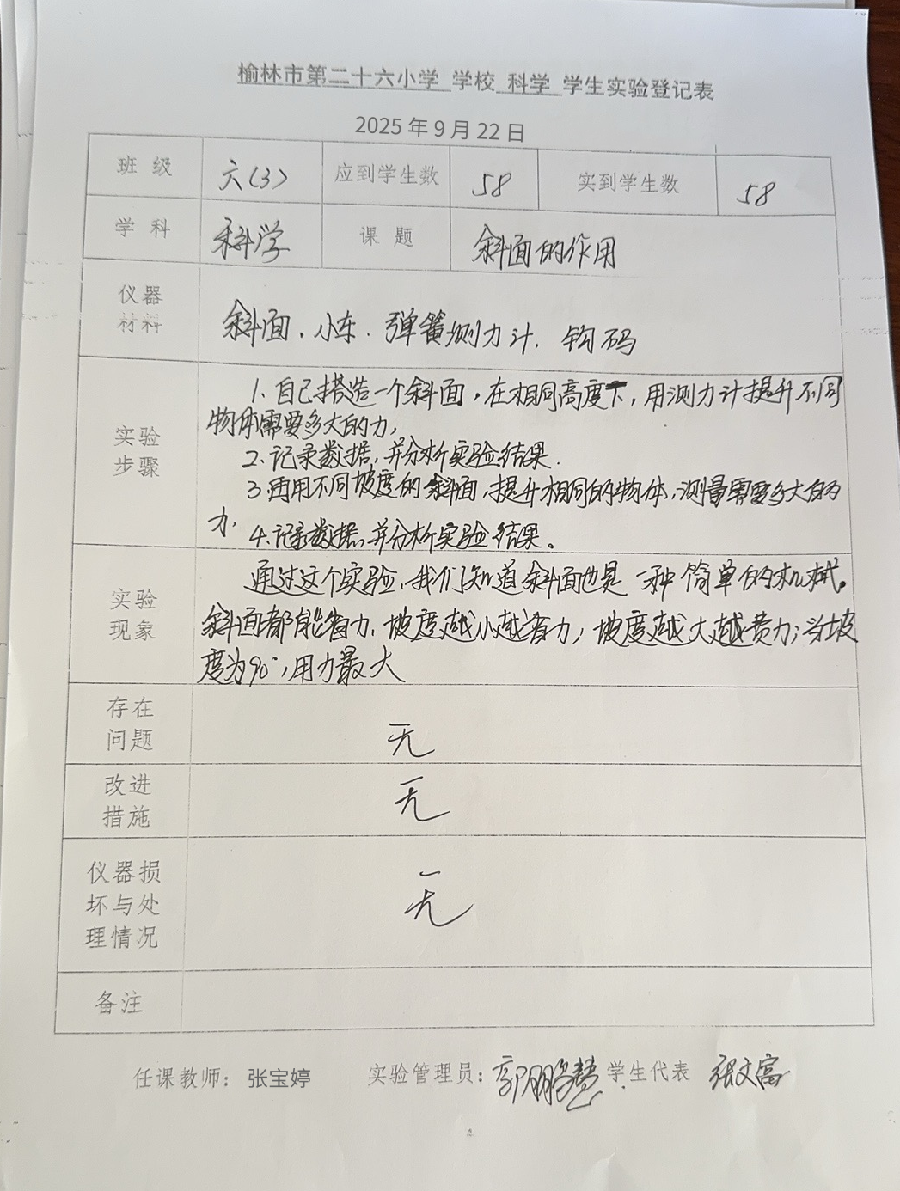 榆林市第二十六小学 学校 科学 学生实验登记表
2025年9月22日
班 级 六(3) 应到学生数 58 实到学生数 58
学 科 科学 课 题 斜面的作用
仪器
材料
斜面、小车、弹簧测力计、钩码
实验
步骤
1.自己搭造一个斜面,在相同高度下,用测力计提升不同
物体需要多大的力,
2.记录数据,并分析实验结果.
3.再用不同坡度的斜面,提升相同的物体,测量需要多大的
力,
4.记录数据,并分析实验结果。
实验
现象
通过这个实验,我们知道斜面也是一种简单的机械。
斜面都能省力,坡度越小越省力;坡度越大越费力;当坡
度为90°,用力最大
存在
问题
无
改进
措施
无
仪器损
坏与处
理情况
无
备注
任课教师:张宝婷 实验管理员: 学生代表 张文富